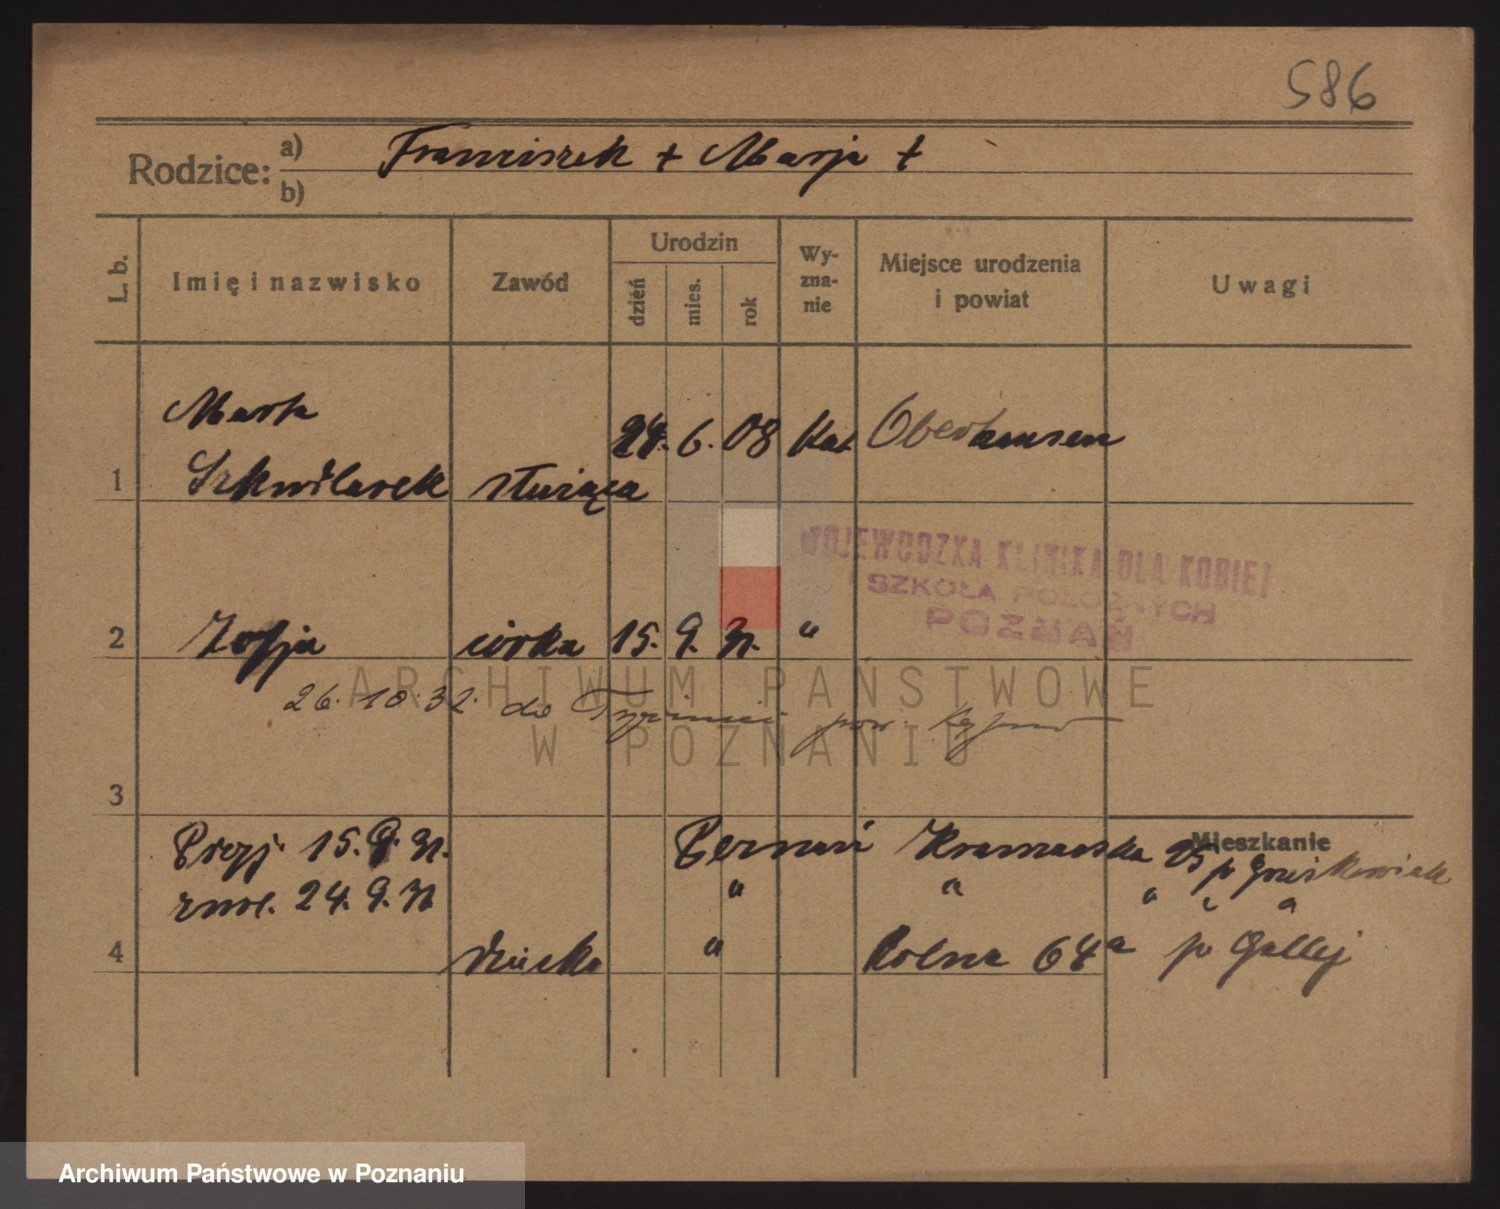 586
Rodzice: a) Franciszek + Marja +
b)
L. b. Imię i nazwisko Zawód Urodzin dzień mies. rok Wy-zna-nie Miejsce urodzenia i powiat Uwagi
Marta
1 Szkudlarek służąca 24. 6. 08 Kat. Oberhausen
WOJEWÓDZKA KLINIKA DLA KOBIET
I SZKOŁA POŁOŻNYCH
POZNAŃ
2 Zofja córka 15. 9. 31. "
26.10.32. do pow.
ARCHIWUM PAŃSTWOWE
W POZNANIU
3
Mieszkanie
Przyj. 15. 9. 31. Poznań Kramarska 25 p
zwol. 24. 9. 31 " " " " "
4 dziecko " Rolna 64a p Gallej
Archiwum Państwowe w Poznaniu